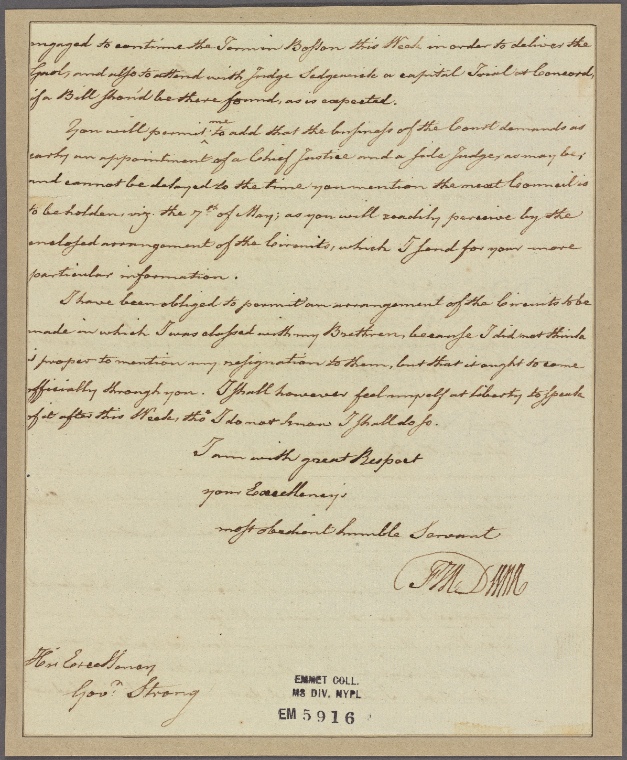 engaged to continue the Term in Boston this Week in order to deliver the
Gaol, and also to attend with Judge Sedgwick a capital Trial at Concord,
if a Bill shou'd be there found, as is expected.
You will permit me to add that the business of the Court demands as
early an appointment of a Chief Justice and a side Judge, as may be;
and cannot be delayed to the time you mention the next Council is
to be holden, viz. the 7th of May; as you will readily perceive by the
enclosed arrangement of the Circuits, which I send for your more
particular information.
I have been obliged to permit an arrangement of the Circuits to be
made in which I was classed with my Brethren, because I did not think
it proper to mention my resignation to them, but that it ought to come
officially through you. I shall however feel myself at liberty to speak
of it after this Week, tho' I do not know I shall do so.
I am with great Respect
your Excellency's
most obedient humble Servant
His Excellency
Govr Strong
EMMET COLL.
MS DIV. NYPL
EM 5916